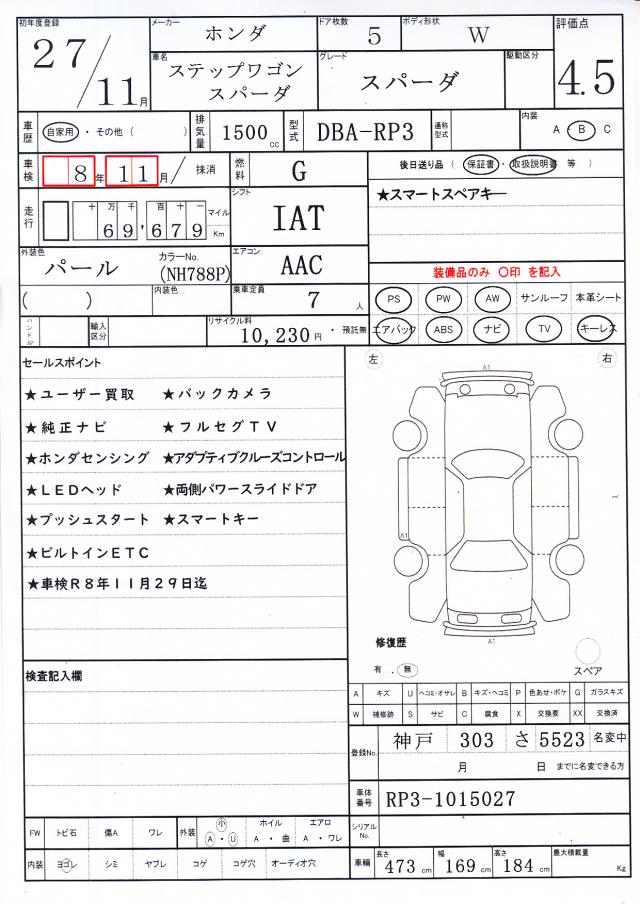 初年度登録 27/11月
メーカー ホンダ ドア枚数 5 ボディ形状 W 評価点 4.5
車名 ステップワゴン スパーダ グレード スパーダ 駆動区分
車歴 自家用 ・ その他 ( ) 排気量 1500 cc 型式 DBA-RP3 通称型式 内装 A ・ B ・ C
車検 8年 11月 / 抹消 燃料 G 後日送り品 ( 保証書 ・ 取扱説明書 等 )
走行 十 万 千 百 十 一 69,679 マイル Km シフト IAT ★スマートスペアキー
外装色 パール カラーNo. (NH788P) エアコン AAC 装備品のみ 〇印 を記入
( ) 内装色 乗車定員 7 人 PS PW AW サンルーフ 本革シート
ハンドル 輸入区分 リサイクル料 10,230 円 ・ 預託無 エアバック ABS ナビ TV キーレス
セールスポイント
★ユーザー買取 ★バックカメラ
★純正ナビ ★フルセグTV
★ホンダセンシング ★アダプティブクルーズコントロール
★LEDヘッド ★両側パワースライドドア
★プッシュスタート ★スマートキー
★ビルトインETC
★車検R8年11月29日迄
左 右
A1
A1
A1
修復歴
有 . 無 スペア
検査記入欄
A キズ U ヘコミ・オサレ B キズ・ヘコミ P 色あせ・ボケ G ガラスキズ
W 補修跡 S サビ C 腐食 X 交換要 XX 交換済
登録No. 神戸 303 さ 5523 名変中
月 日 までに名変できる方
車体番号 RP3-1015027
FW トビ石 傷A ワレ 外装 小 A ・ U ホイル A ・ 曲 エアロ A ・ ワレ シリアルNo.
内装 ヨゴレ シミ ヤブレ コゲ コゲ穴 オーディオ穴 車輛 長さ 473 cm 幅 169 cm 高さ 184 cm 最大積載量 Kg